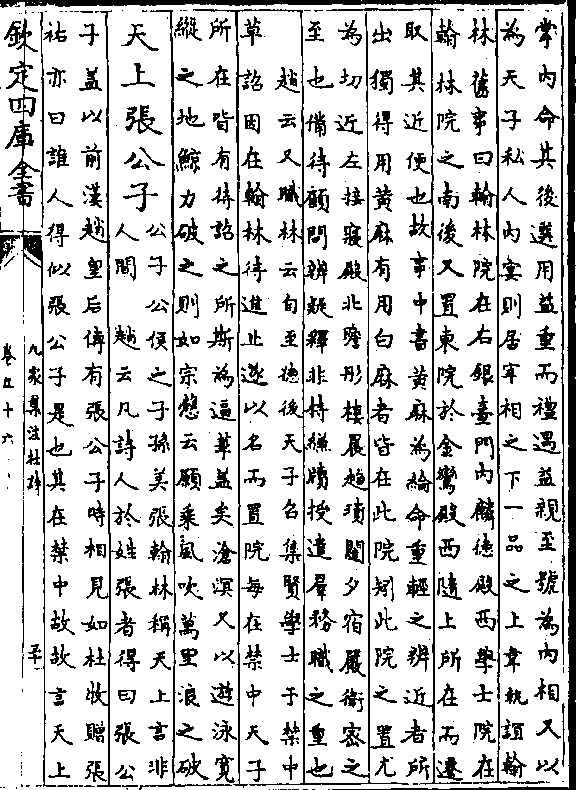 掌内命其後選用益重而禮遇益親至號為内相又以
為天子私人内宴則居宰相之下一品之上韋執誼翰
林舊事曰翰林院在右銀臺門内麟德殿西學士院在
翰林院之南後又置東院於金鸞殿西隨上所在而遷
取其近便也故事中書黄麻為綸命重輕之辨近者所
出獨得用黄麻有用白麻者皆在此院矧此院之置尤
為切近左接寢殿北瞻彤樓晨趨瑣闥夕宿嚴衛密之
至也備待顧問辨疑釋非持縑牘授遣羣務職之重也
趙云又職林云自至德後天子召集賢學士于禁中
草詔因在翰林待進止遂以名而置院每在禁中天子
所在皆有待詔之所斯為逼華蓋矣滄溟又以遊泳寛
縱之地鯨力破之則如宗慤云願乘風吹萬里浪之破
天上張公子
公子公侯之子孫美張翰林稱天上言非
人間 趙云凡詩人於姓張者得曰張公
子盖以前漢趙皇后傳有張公子時相見如杜牧贈張
祐亦曰誰人得似張公子是也其在禁中故故言天上
欽定四庫全書
九家集注杜詩
卷五十六